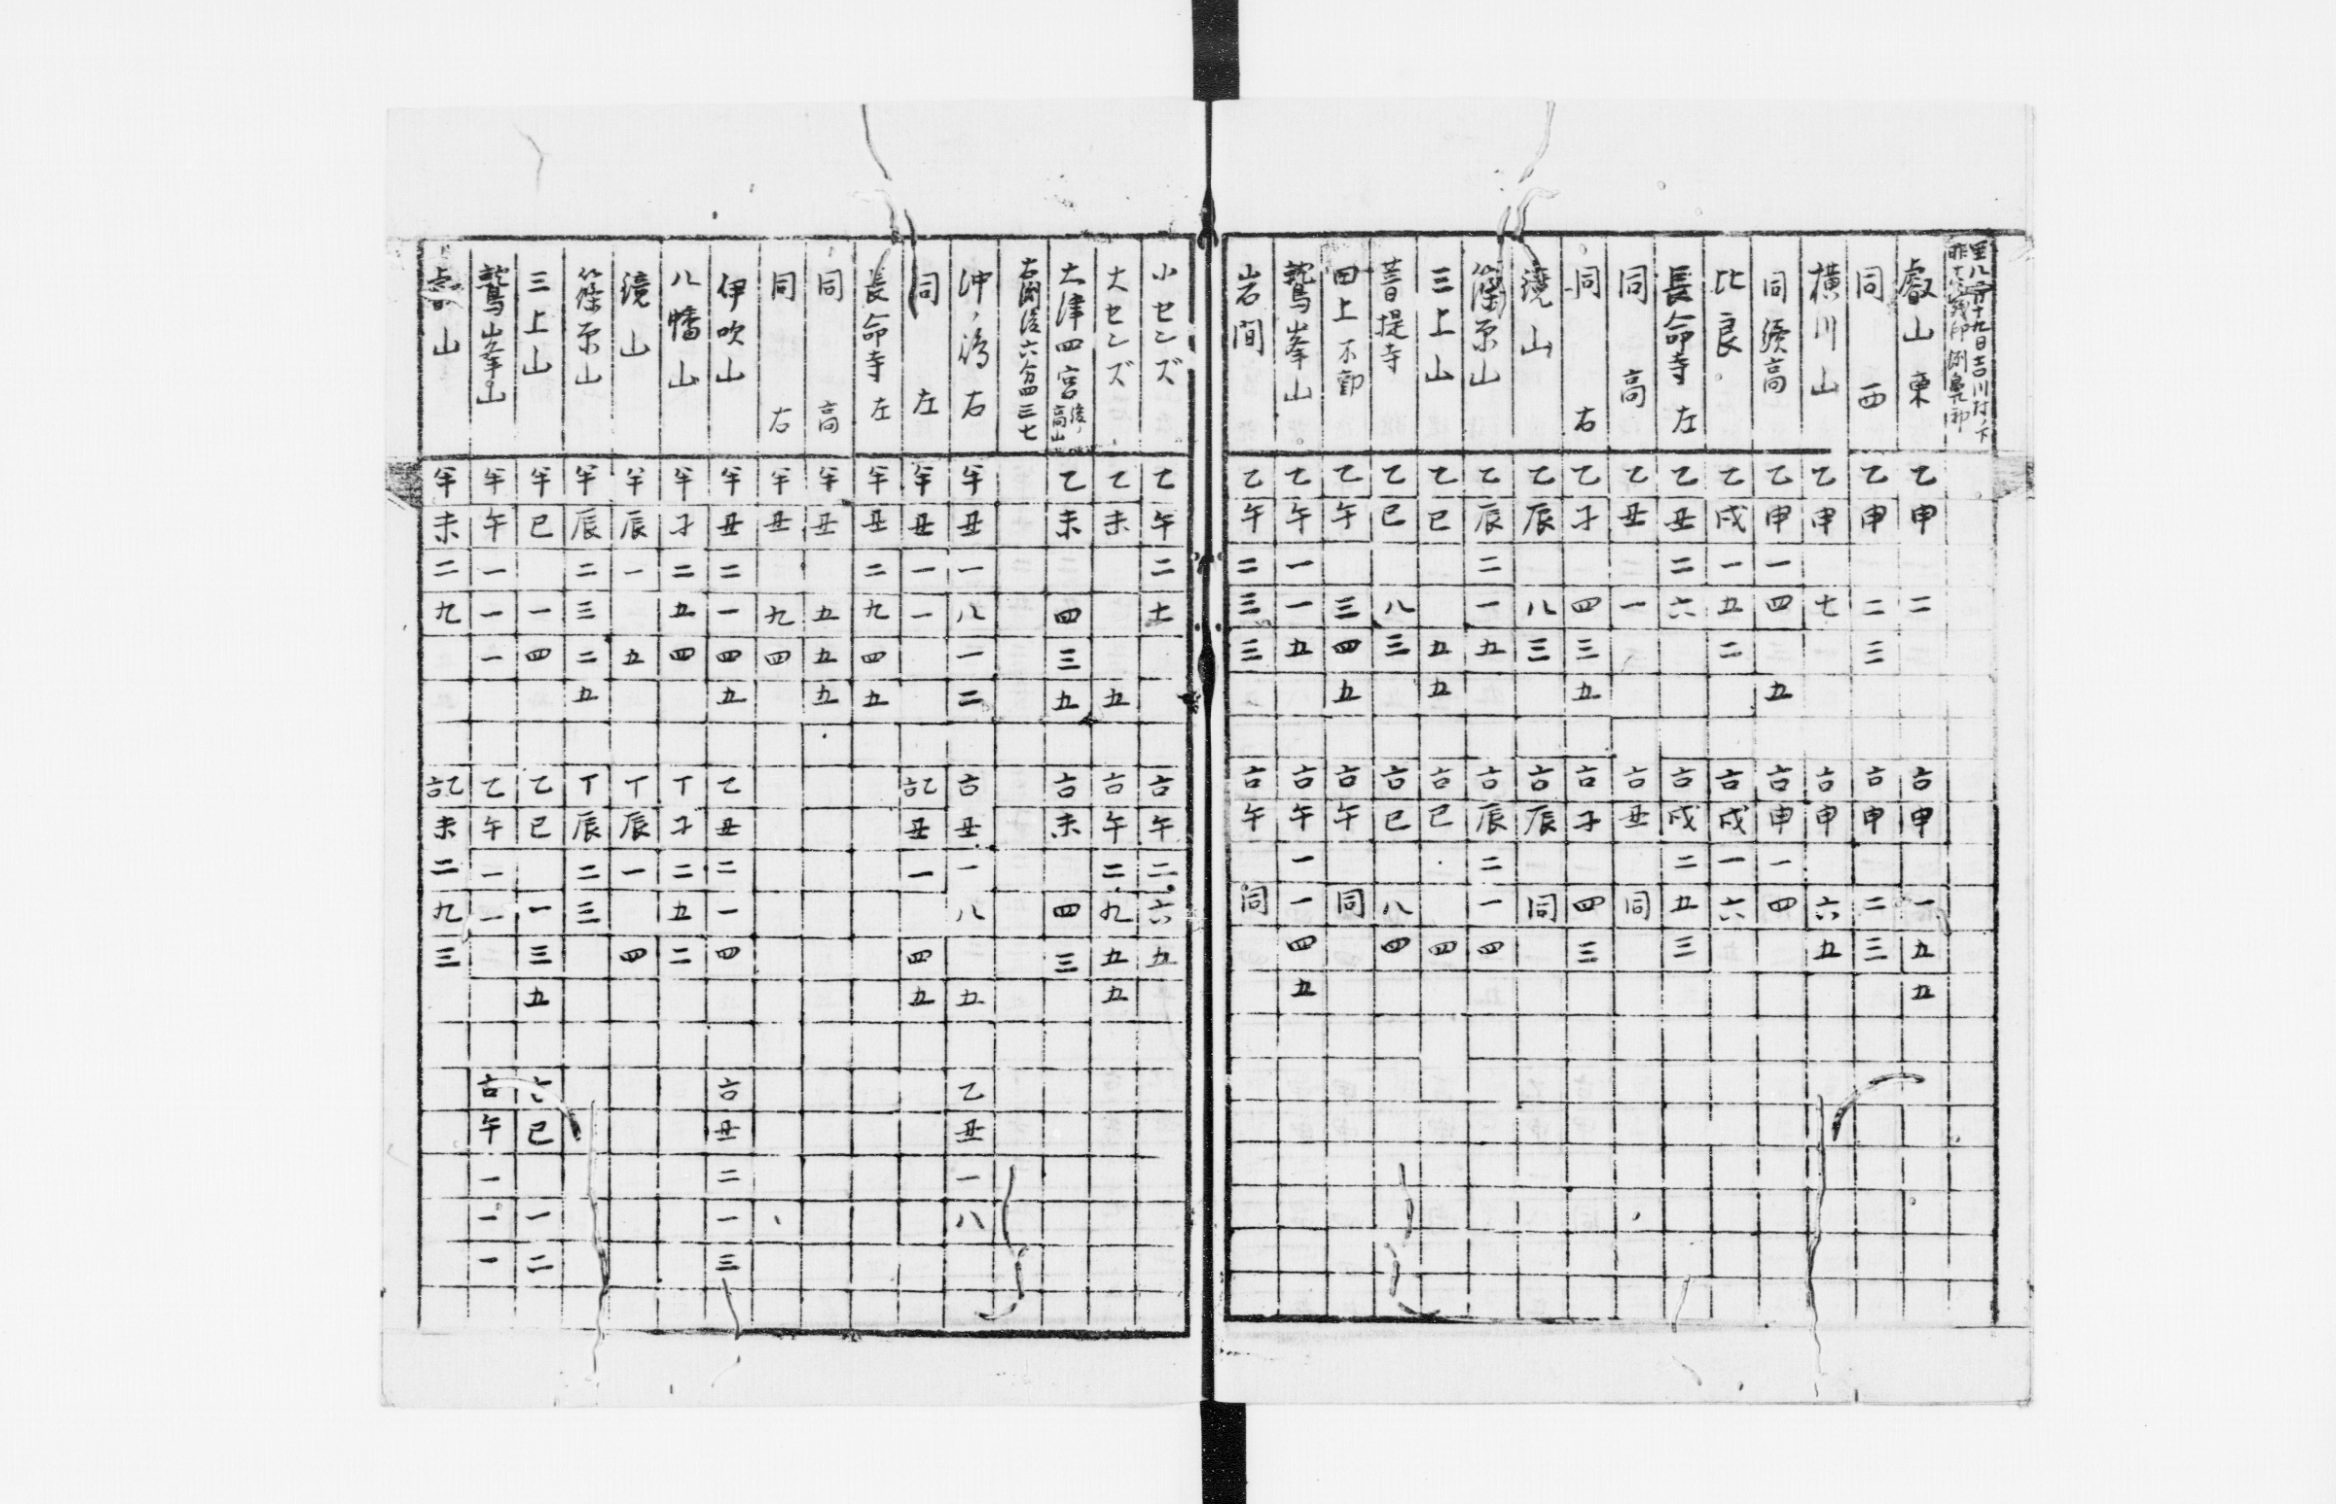 叡山東 乙申 二 吉申 一五五
同 西 乙申 二三 吉申 二三
横川山 乙申 七 吉申 六五
同 續高 乙申一四 五 吉申一四
比良 乙戌一五二 吉戌一六
長命寺 左 乙丑二六 吉戌二五三
同 高 乙丑 一 吉丑 同
同 右 乙子 四三五 吉子 四三
鏡山 乙辰 八三 吉辰 同
篠原山 乙辰二一五 吉辰二一四
三上山 乙巳 五五 吉巳 四
菩提寺 乙巳 八三 吉巳 八四
田上不動 乙午 三四五 吉午 同
鷲峯山 乙午一一五 吉午一一四五
岩間 乙午二三三 吉午 同
小センズ 乙午二土 吉午二六五
大センズ 乙未 五 吉午二九五五
大津四宮 乙未 四三五 吉未 四三
沖ノ嶋 右 半丑一八一二 吉丑一八 五 乙丑一八
同 左 半丑一一 記丑一 四五
長命寺 左 半丑二九四五
同 高 半丑 五五五
同 右 半丑 九四
伊吹山 半丑二一四五 乙丑二一四 吉丑二一三
八幡山 半子二五四 丁子二五二
鏡山 半辰一 五 丁辰一 四
篠原山 半辰二三二五 丁辰二三
三上山 半巳 一四 乙巳 一三五 吉巳 一二
鷲峯山 半午一一一 乙午一一 吉午一一一
叡山 半未二九 記未二九三